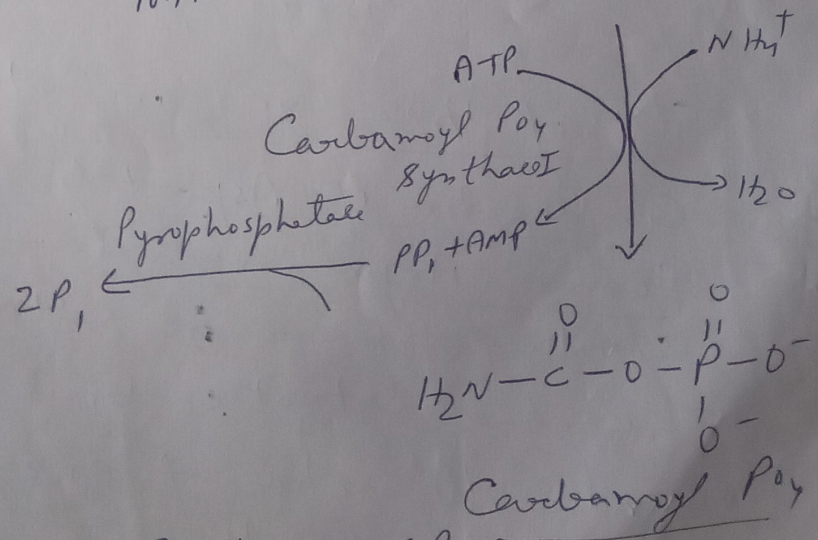 ATP NH4+
Carbamoyl PO4
SynthaseI
H2O
Pyrophosphatase
PPi + AMP
2Pi
O O
|| ||
H2N — C — O — P — O-
|
O-
Carbamoyl PO4